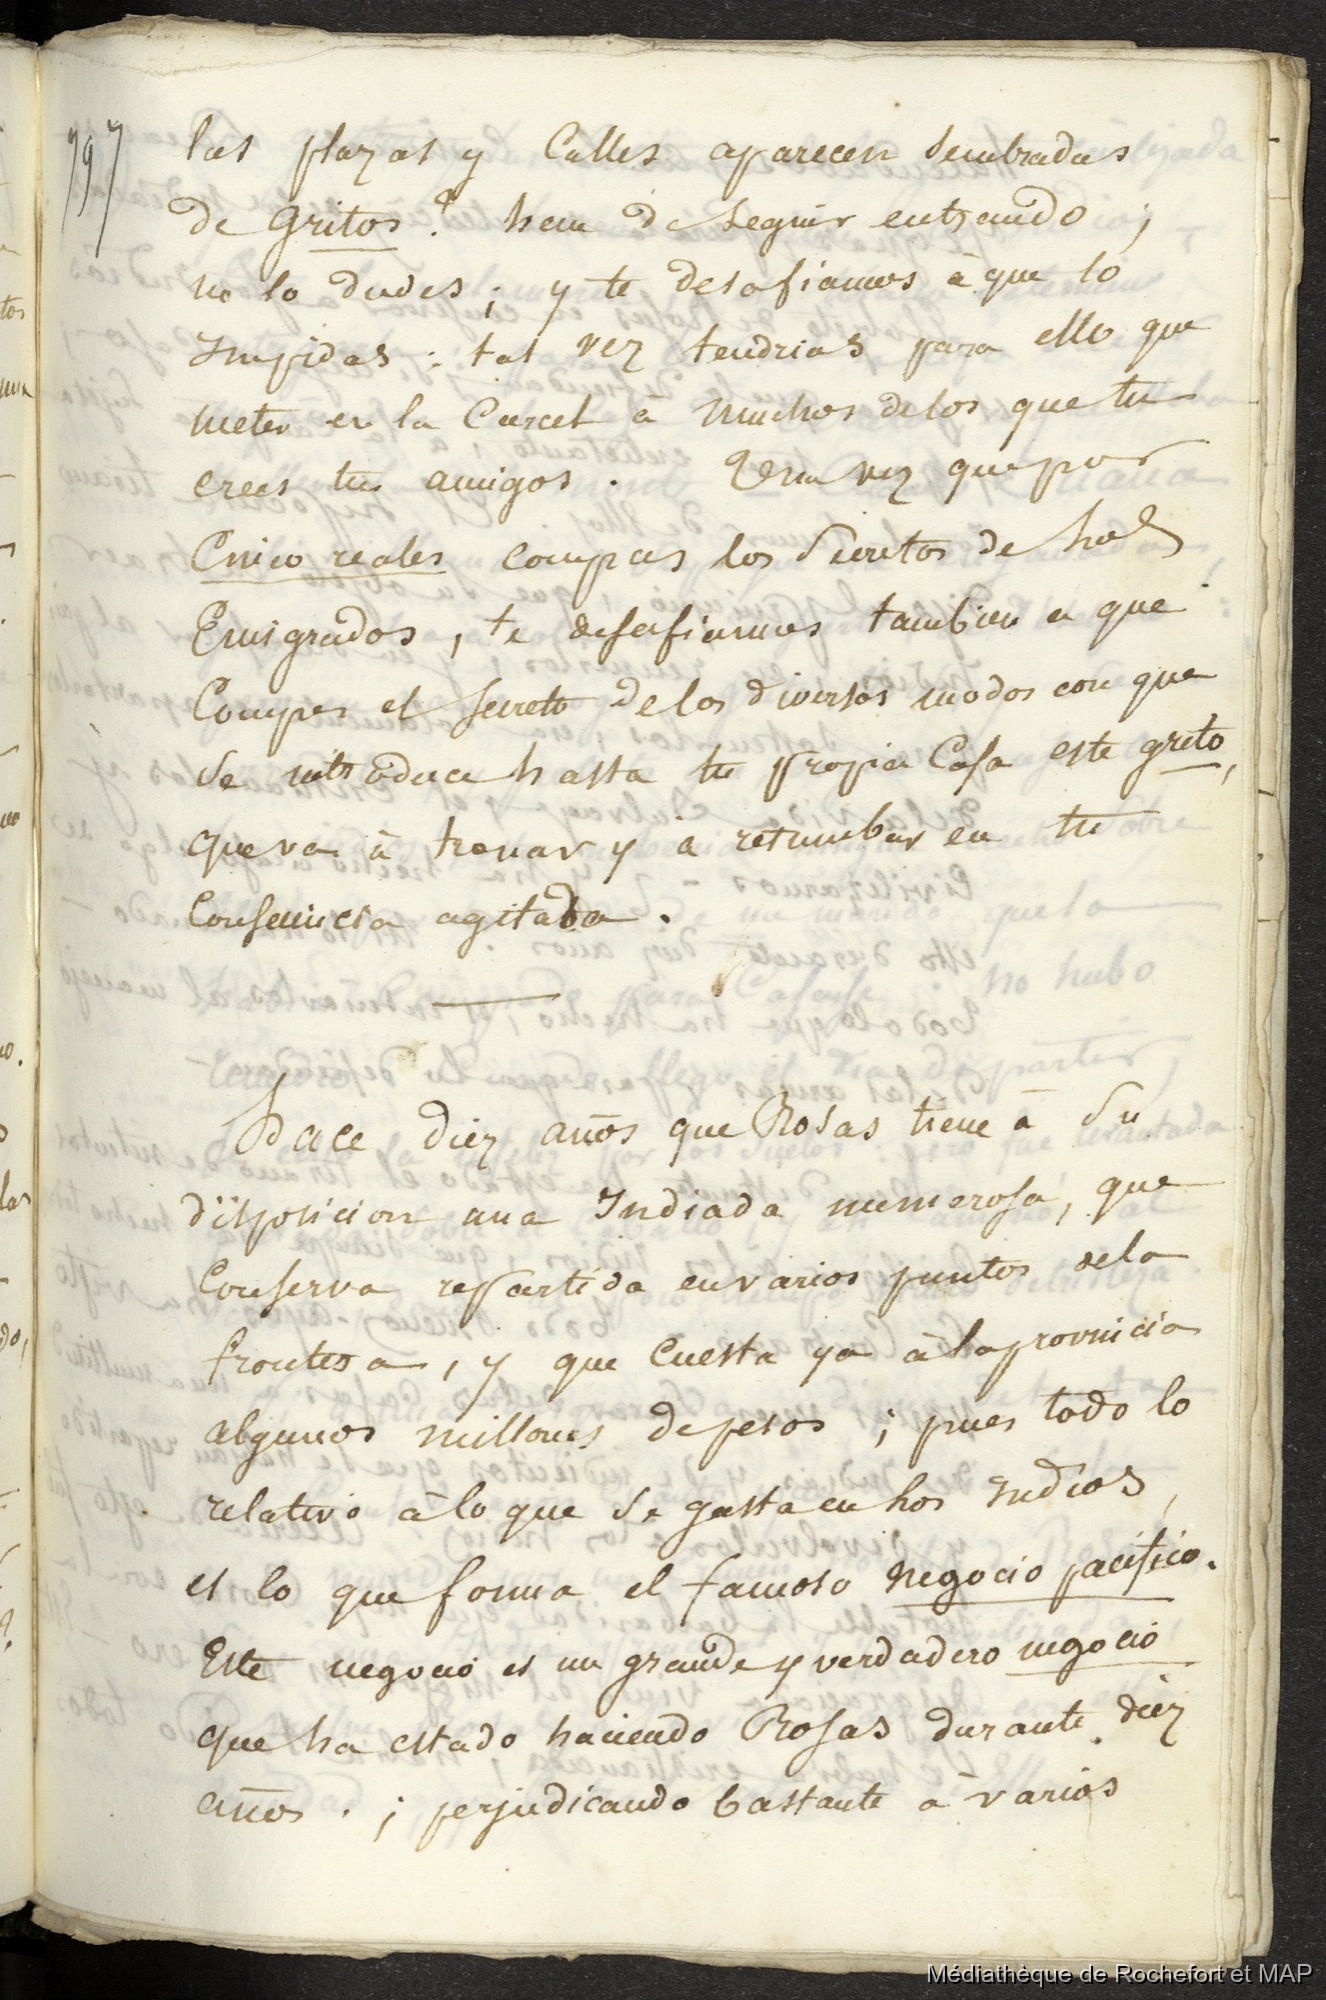 797
las plazas y Calles aparecen Sembradas
de gritos? hem de Seguir entrando;
no lo dudes; y te desafiamos à que lo
Impidas: tal vez tendrias para ello que
meter en la Carcel à Muchos delos que tu
crees tus amigos. Y una vez que por
Cinco reales compras los Secretos de los
Emigrados, te desafiamos tambien a que
Compres el Secreto de los diversos modos con que
Se introduce hasta tu propia Casa este grito,
que va à tronar y à retumbar en tu
Consciencia agitada.
Hace diez años que Rosas tiene à Su
disposicion una Indiada numerosa, que
Conserva repartida en varios puntos dela
frontera, y que Cuesta ya à la provincia
algunos millones de pesos; pues todo lo
relativo à lo que Se gasta en los Indios,
es lo que forma el famoso negocio pacifico.
Este negocio es un grande y verdadero negocio
que ha estado haciendo Rosas durante diez
años.; perjudicando bastante à varios
Médiathèque de Rochefort et MAP